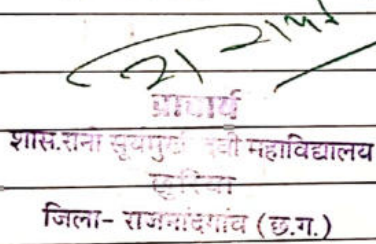 प्राचार्य
शास.रानी सूर्यमुखी देवी महाविद्यालय
छुरिया
जिला- राजनांदगांव (छ.ग.)